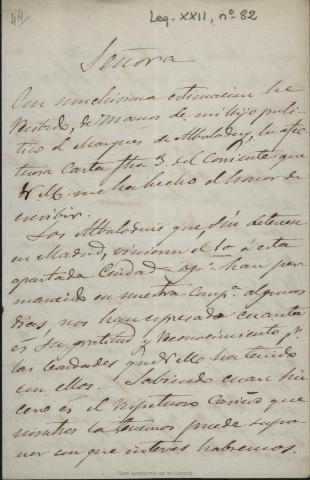 44
Leg. XXII, nº 82
Señora
Con muchisima estimacion he
recibido, de manos de mi hijo poli-
tico el Marques de Albaloduy, la afec-
tuosa Carta fha 3. del Corriente que
V M. me ha hecho el honor de
escribir.
Los Albaloduis que, sin detenerse
en Madrid, vinieron el 10 á esta
apartada Ciudad y qe han per
manecido en nuestra Compª. algunos
dias, nos han espresado cuanta
és su gratitud y reconocimiento pr.
las bondades que V M ha tenido
con ellos. Sabiendo cuan sin
cero és el respetuoso Cariño que
nosotros la tenemos puede supo
ner con que interés habremos
Real Academia de la Historia